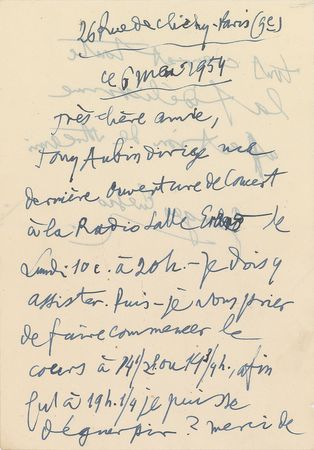 26 Rue de Clichy - Paris (9e)
ce 6 mars 1954
Très chère amie,
Tony Aubin dirige une
dernière ouverture de Concert
à la Radio Salle Erard le
Lundi 10 c. à 20h. - je dois y
assister. Puis-je vous prier
de faire commencer le
cours à 14h, afin
qu'à 19h. 1/4 je puisse
déguerpir ? merci de